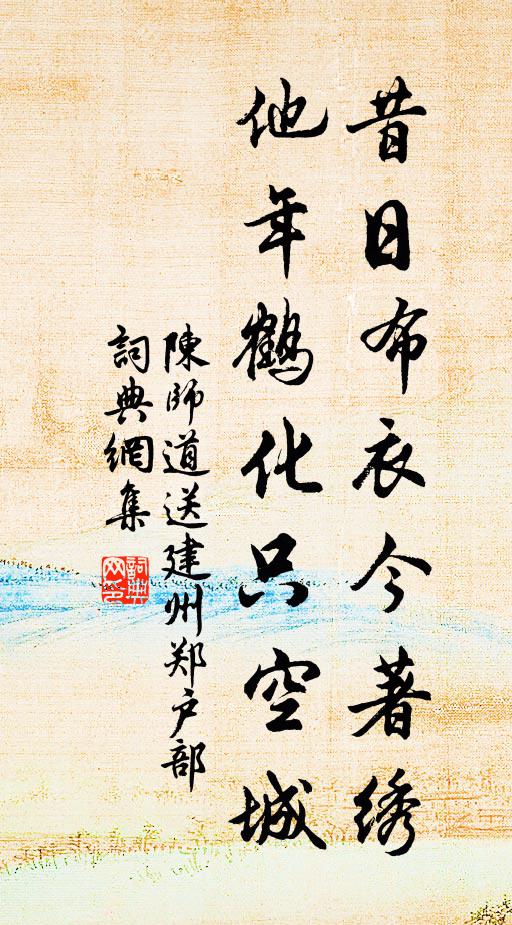 昔日布衣今著绣
他年鶴化只空城
陳師道送建州郑户部
詞典網集
詞典网印